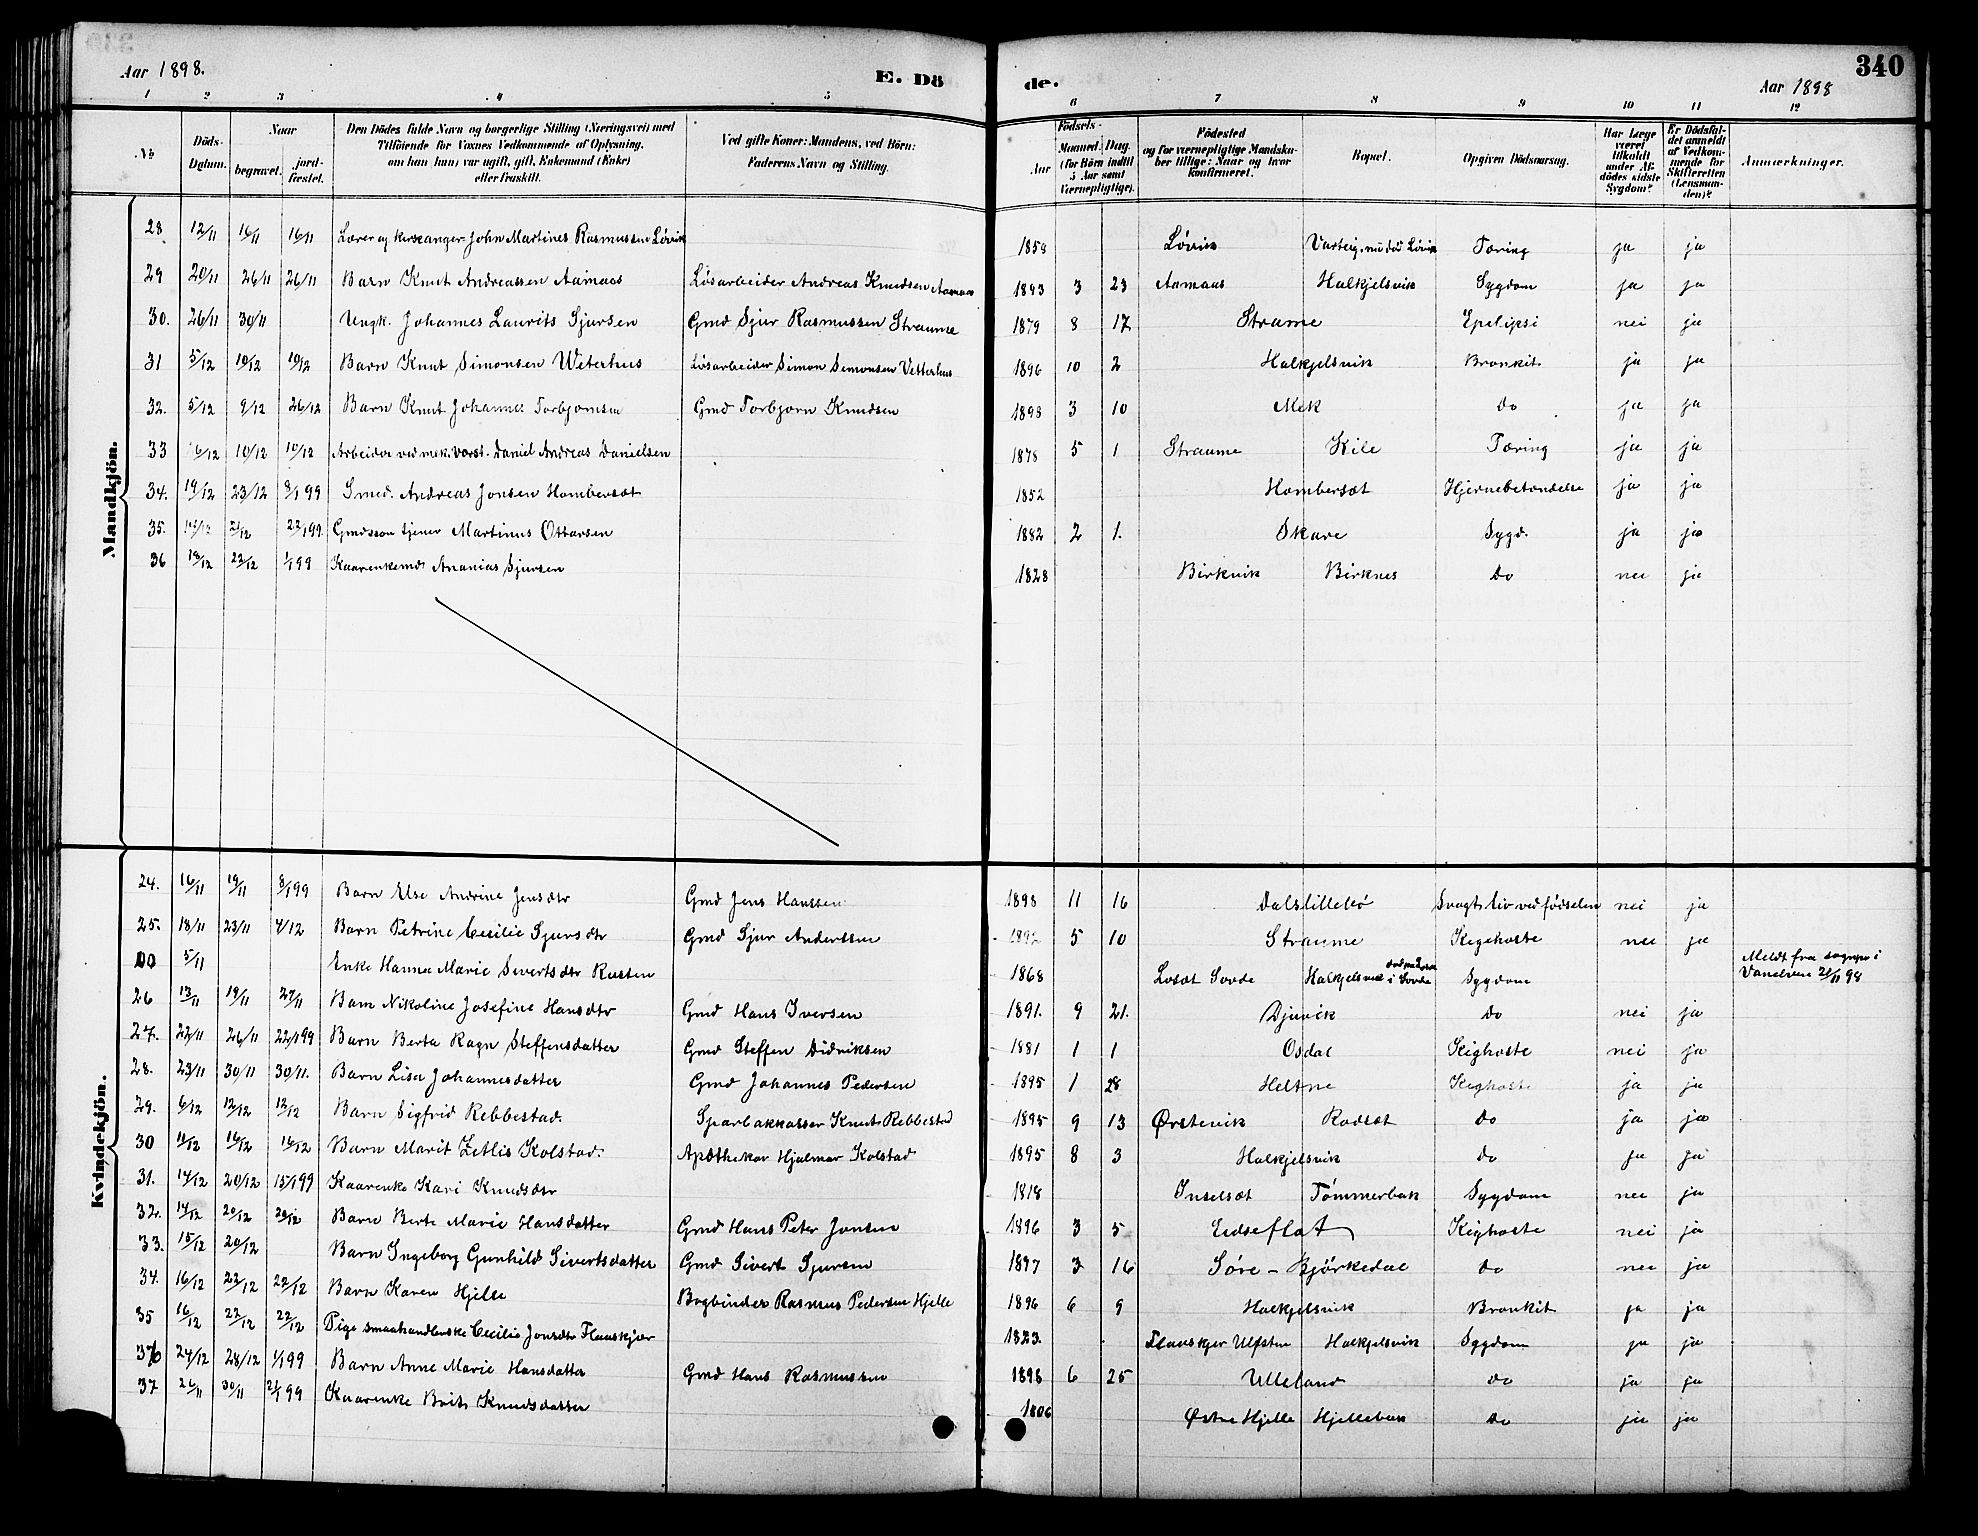 340
Aar 1898. E. Dö de. Aar 1898
1 2 3 4 5 6 7 8 9 10 11 12
No Döds-Datum. Naar begravet. jord-fæstet. Den Dödes fulde Navn og borgerlige Stilling (Næringsvei) med Tilföiende for Voxnes Vedkommende af Oplysning, om han (hun) var ugift, gift, Enkemand (Enke) eller fraskilt. Ved gifte Koner: Mandens, ved Börn: Faderens Navn og Stilling. Födsels- Aar Maaned. Dag. (for Börn indtil 5 Aar samt Værnepligtige). Födested og for værnepligtige Mandskaber tillige: Naar og hvor konfirmeret. Bopæl. Opgiven Dödsaarsag. Har Læge været tilkaldt under Afdödes sidste Sygdom? Er Dödsfaldet anmeldt af Vedkommende for Skifteretten (Lensmanden)? Anmærkninger.
Mandkjön.
28 12/11 16/11 16/11 Lærer og Kirkesanger John Martines Rasmussen Løvik 1858 Løvik Varteig, nu død Løvik Tæring ja ja
29 20/11 26/11 26/11 Barn Knut Andreassen Aamaas Løsarbeider Andreas Knudsen Aamaas 1893 3 23 Aamaas Halkjelsvik Sygdom ja ja
30. 26/11 30/11 Ungk. Johannes Laurits Sjursen Gmd Sjur Rasmussen Straume 1879 8 17 Straume Epelipsi nei ja
31 5/12 10/12 10/12 Barn Knut Simonsen Weterhus Løsarbeider Simon Simonsen Vetterhus 1896 10 2 Halkjelsvik Bronkit ja ja
32. 5/12 9/12 26/12 Barn Knut Johannes Torbjørnsen Gmd Torbjørn Knudsen 1898 3 10 Mek Do ja ja
33 6/12 10/12 10/12 Arbeider ved mek. Værst. Daniel Andreas Danielsen 1878 5 1 Straume Kile Tæring ja ja
34. 19/12 23/12 8/1 99 Smed. Andreas Jonsen Hombersæt 1852 Hombersæt Hjernebetændelse ja ja
35. 21/12 22/1 99 Gmdssøn tjener Martinus Ottarsen 1882 2 1. Skare Sygd. ja ja
36 18/12 22/12 1/1 99 Kaarenkemd. Ananias Sjursen 1828 Birkvik Birknes Do nei ja
Kvindekjön.
24. 16/11 19/11 8/1 99 Barn Else Andrine Jensdtr Gmd Jens Hanssen 1898 11 16 Dalslillebø Svagt liv ved fødselen nei ja
25. 18/11 23/11 4/12 Barn Petrine Cecilie Sjursdtr Gmd Sjur Anderssen 5 10 Straume Kigehoste nei ja
00 5/11 Enke Hanna Marie Sivertsdtr Rusten 1868 Løset Sovde Halkjelsvik død paa Løset i Sovde Sygdom Meldt fra sognepr i Vanelven 21/11 98
26 13/11 19/11 27/11 Barn Nikoline Josefine Hansdtr Gmd Hans Iversen 1891. 9 21. Djuvik Do nei ja
27. 22/11 26/11 22/1 99 Barn Berta Ragn. Steffensdatter Gmd Steffen Didriksen 1881 1 1 Osdal Kighoste nei ja
28. 23/11 30/11 30/11. Barn Lisa Johannesdatter Gmd Johannes Pedersen 1895 1 28 Heltne Kighoste ja ja
29. 6/12 12/12 12/12 Barn Sigfrid Rebbestad. Sparbakkasser Knut Rebbestad 1895 9 13 Ørstevik Rodsæt Do ja ja
30 11/12 16/12 16/12 Barn Marit Zetlis Kolstad. Apotheker Hjalmar Kolstad 1895 8 3 Halkjelsvik Do ja ja
31. 14/12 20/12 15/1 99 Kaarenke Kari Knudsdtr 1818 Inselsæt Tømmerbak Sygdom nei ja
32. 14/12 20/12 20/12 Barn Berte Marie Hansdatter Gmd Hans Peter Jonsen 1896 3 5 Eidseflot Kighoste nei ja
33. 15/12 20/12 Barn Ingeborg Gunhild Sivertsdatter Gmd Sivert Sjursen 1897 3 16 Søre-Bjørkedal Do nei ja
34. 16/12 22/12 22/12 Barn Karen Hjelle Bogbinder Rasmus Pedersen Hjelle 1896 6 9 Halkjelsvik Bronkit ja ja
35 16/12 22/12 22/12 Pige smaahandlerske Cecilie Jonsdtr Flauskjær 1823 Flauskjer Ulfsten Halkjelsvik Sygdom ja ja
36 24/12 28/12 1/1 99 Barn Anne Marie Hansdatter Gmd Hans Rasmussen 1898 6 25 Ulleland Do ja ja
37 26/11 30/11 2/1 99 Kaarenke Brite Knudsdatter 1806 Østre Hjelle Hjellebak Do ja ja